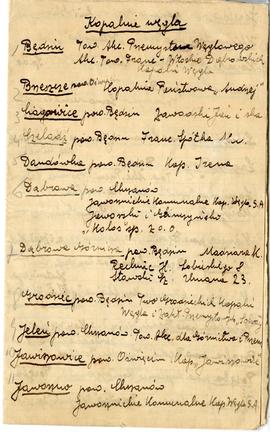 Kopalnie węgla
1) Będzin Tow. Akc. Przemysłowe Węglowego
Akc. Tow. Franc-Włoskie Dąbrowskich
Kopalń Węgla
Brzeszcze pow. Kopalnia Państwowa, Andrzej
Ciągowice pow. Będzin Zawadzki Jan i ska
Czeladź pow. Będzin Franc. Spółka Akc.
5 Dańdówka pow. Będzin Kop. Irena
6 Dąbrowa pow. Chrzanów
Jaworznickie Komunalne Kop. Węgla S.A
Jaworski i
"Kolos" sp. z o.o.
Dąbrowa Górnicza pow. Będzin K.
H. Sobieskiego 8
Sławski Sz. 23.
Grodziec pow. Będzin Tow Grodzieckich Kopalń
Węgla i Zakł. Przemysł.
Jeleń pow. Chrzanów Tow. Akc. dla Górnictwa i Przem
Jawiszowice pow. Oświęcim Kop. Jawiszowice
Jaworzno pow. Chrzanów
Jaworznickie Komunalne Kop Węgla S.A